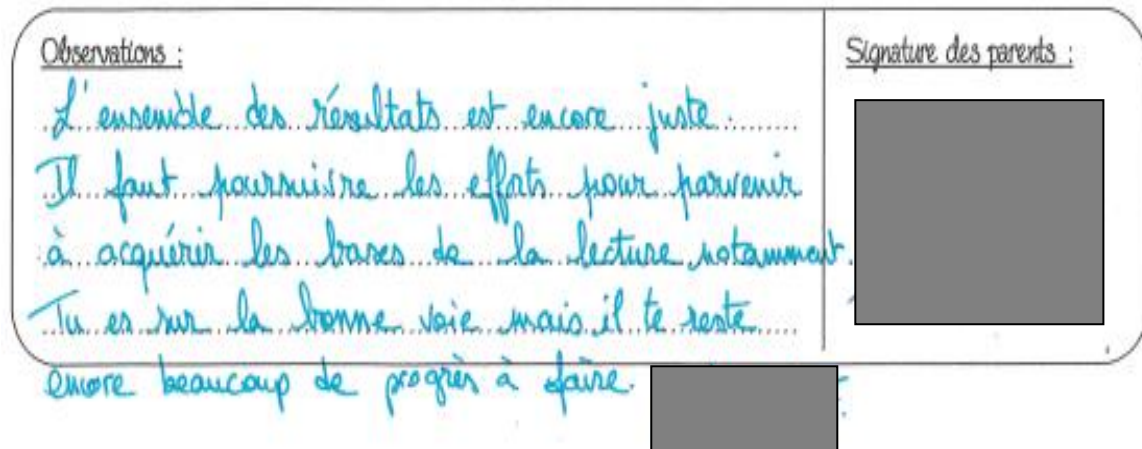 Observations :
Signature des parents :
L'ensemble des résultats est encore juste.
Il faut poursuivre les efforts pour parvenir
à acquérir les bases de la lecture notamment.
Tu es sur la bonne voie mais il te reste
encore beaucoup de progrès à faire.